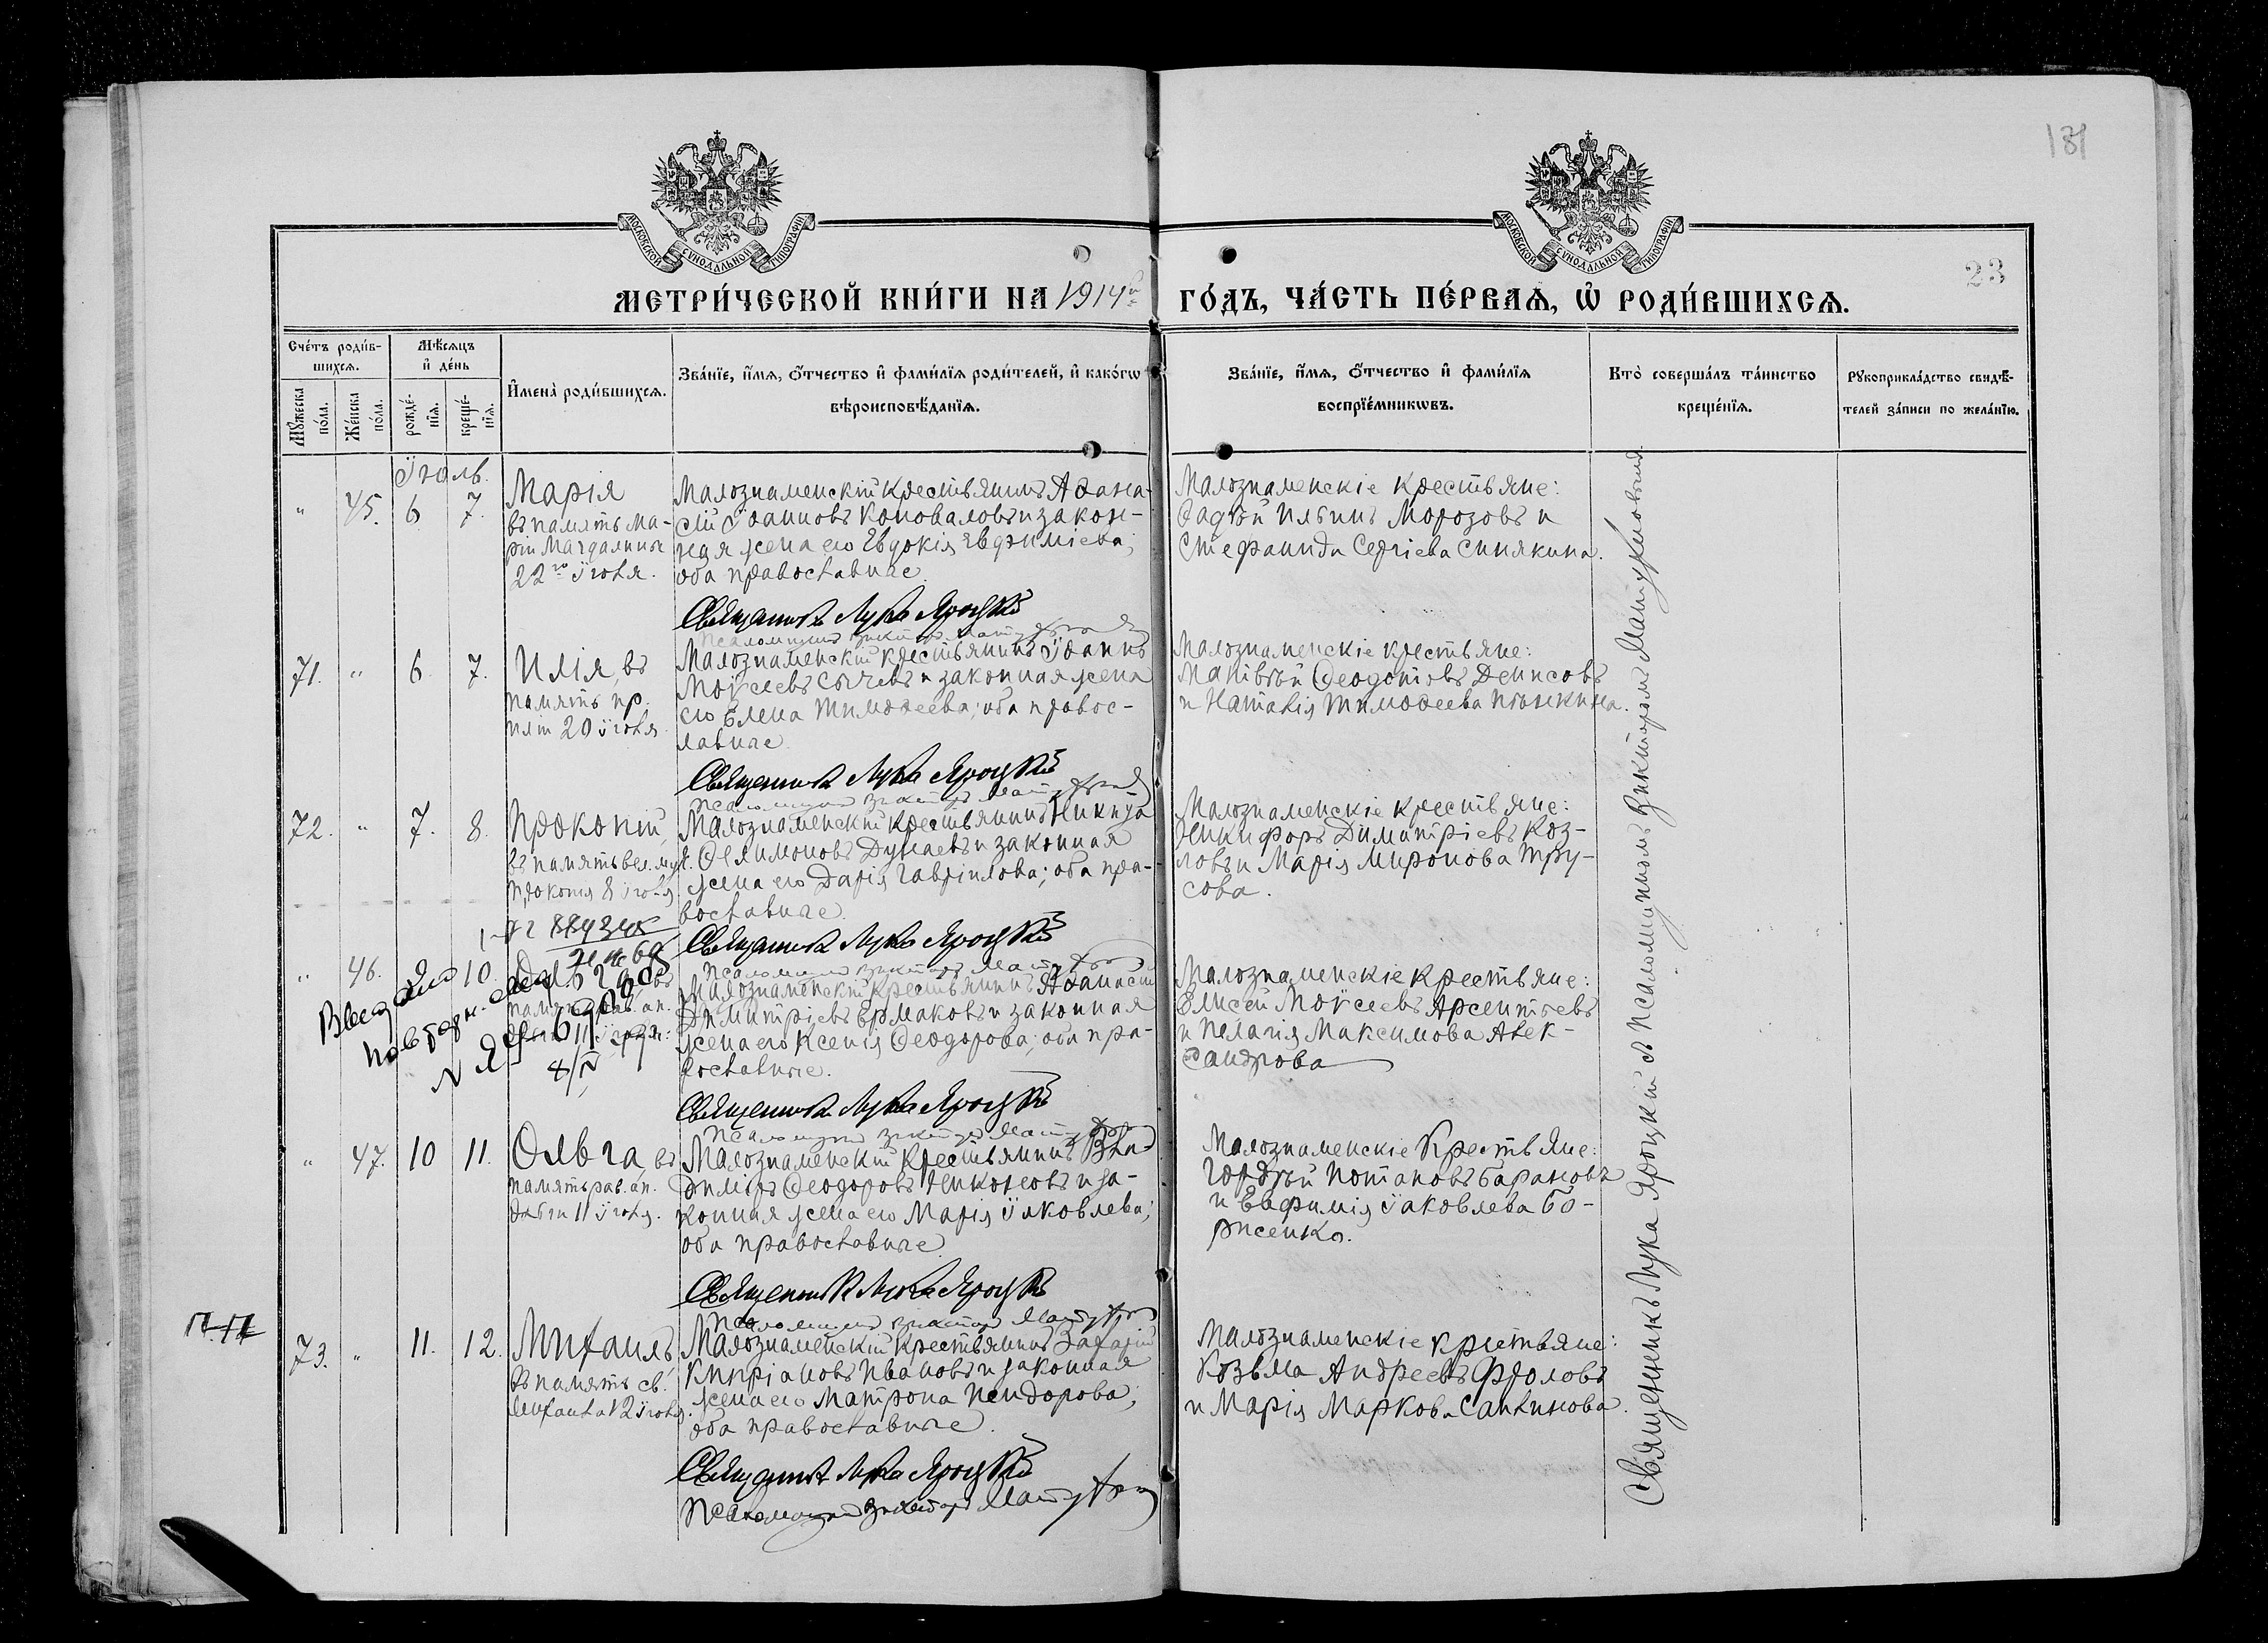 181
МОСКОВСКОЙ СѴНОДАЛЬНОЙ ТИПОГРАФІИ
МОСКОВСКОЙ СѴНОДАЛЬНОЙ ТИПОГРАФІИ
23
МЕТРИ́ЧЕСКОЙ КНИ́ГИ НА 1914й ГО́ДЪ, ЧА́СТЬ ПЕ́РВАЯ, Ѡ РОДИ́ВШИХСЯ.
Сче́тъ роди́в-
шихся.
Мꙋжеска по́ла.
Же́нска по́ла.
Мѣ́сяцъ
и҆ де́нь
рожде́-
нїя.
креще́-
нїя.
И҆мена̀ роди́вшихся.
Зва́нїе, и҆́мя, ѻ҆́тчество и҆ фами́лїя роди́телей, и҆ како́гѡ
вѣроисповѣ́данїя.
Зва́нїе, и҆́мя, ѻ҆́тчество и҆ фами́лїя
воспрїе́мникѡвъ.
Кто̀ соверша́лъ та́инство
креще́нїя.
Рꙋкоприкла́дство свидѣ́-
телей за́писи по жела́нїю.
Іюль.
" 45. 6 7.
Марія
въ память Ма-
ріи Магдалины
22го Іюля.
Малознаменскій крестьянинъ Аѳана-
сій Іоанновъ Коноваловъ и закон-
ная жена его Евдокія Евѳиміева;
оба православные.
Священникъ Лука Яроцкій
Псаломщикъ Викторъ
Малознаменскіе крестьяне:
Фадѣй Ильинъ Морозовъ и
Стефанида Сергіева Синякина.
71. " 6 7.
Илія, въ
память пр.
Иліи 20 Іюля
Малознаменскій крестьянинъ Іоаннъ
Моѵсеевъ Сычевъ и законная жена
его Елена Тимоѳеева; оба правос-
лавные
Священникъ Лука Яроцкій
Псаломщикъ Викторъ
Малознаменскіе крестьяне:
Матвѣй Ѳеодотовъ Денисовъ
и Наталія Тимоѳеева
72. " 7. 8.
Прокопій,
въ память вел. муч.
Прокопія 8 Іюля
Малознаменскій крестьянинъ Никита
Филимоновъ Дунаевъ и законная
жена его Дарія Гавріилова; оба пра-
вославные.
Священникъ Лука Яроцкій
Псаломщикъ Викторъ
Малознаменскіе крестьяне:
Никифоръ Димитріевъ Коз-
ловъ и Марія Миронова Тру-
сова.
" 46. 10
Ольга, въ
память рав. ап.
Выдано
повторн.
8/IV
Малознаменскій крестьянинъ Аѳанасій
Димитріевъ Ермаковъ и законная
жена его Ксенія Ѳеодорова; оба пра-
вославные.
Священникъ Лука Яроцкій
Псаломщикъ Викторъ
Малознаменскіе крестьяне:
Елисей Моѵсеевъ Арсентьевъ
и Пелагія Максимова Алек-
сандрова
" 47. 10 11.
Ольга, въ
память рав. ап.
Ольги 11 Іюля.
Малознаменскій крестьянинъ Вла-
диміръ Ѳеодоровъ Никоновъ и за-
конная жена его Марія Іаковлева;
оба православные
Священникъ Лука Яроцкій
Псаломщикъ Викторъ
Малознаменскіе Крестьяне:
Гордѣй Потаповъ Барановъ
и Евфимія Іаковлева Бо-
рисенко.
73. " 11. 12.
Михаилъ
въ память св.
Михаила 12 Іюля.
Малознаменскій крестьянинъ Захарій
Кипріановъ Ивановъ и законная
жена его Матрона Исидорова;
оба православные.
Священникъ Лука Яроцкій
Псаломщикъ Викторъ
Малознаменскіе крестьяне:
Козьма Андреевъ Фроловъ
и Марія Маркова
Священникъ Лука Яроцкій съ Псаломщикомъ Викторомъ